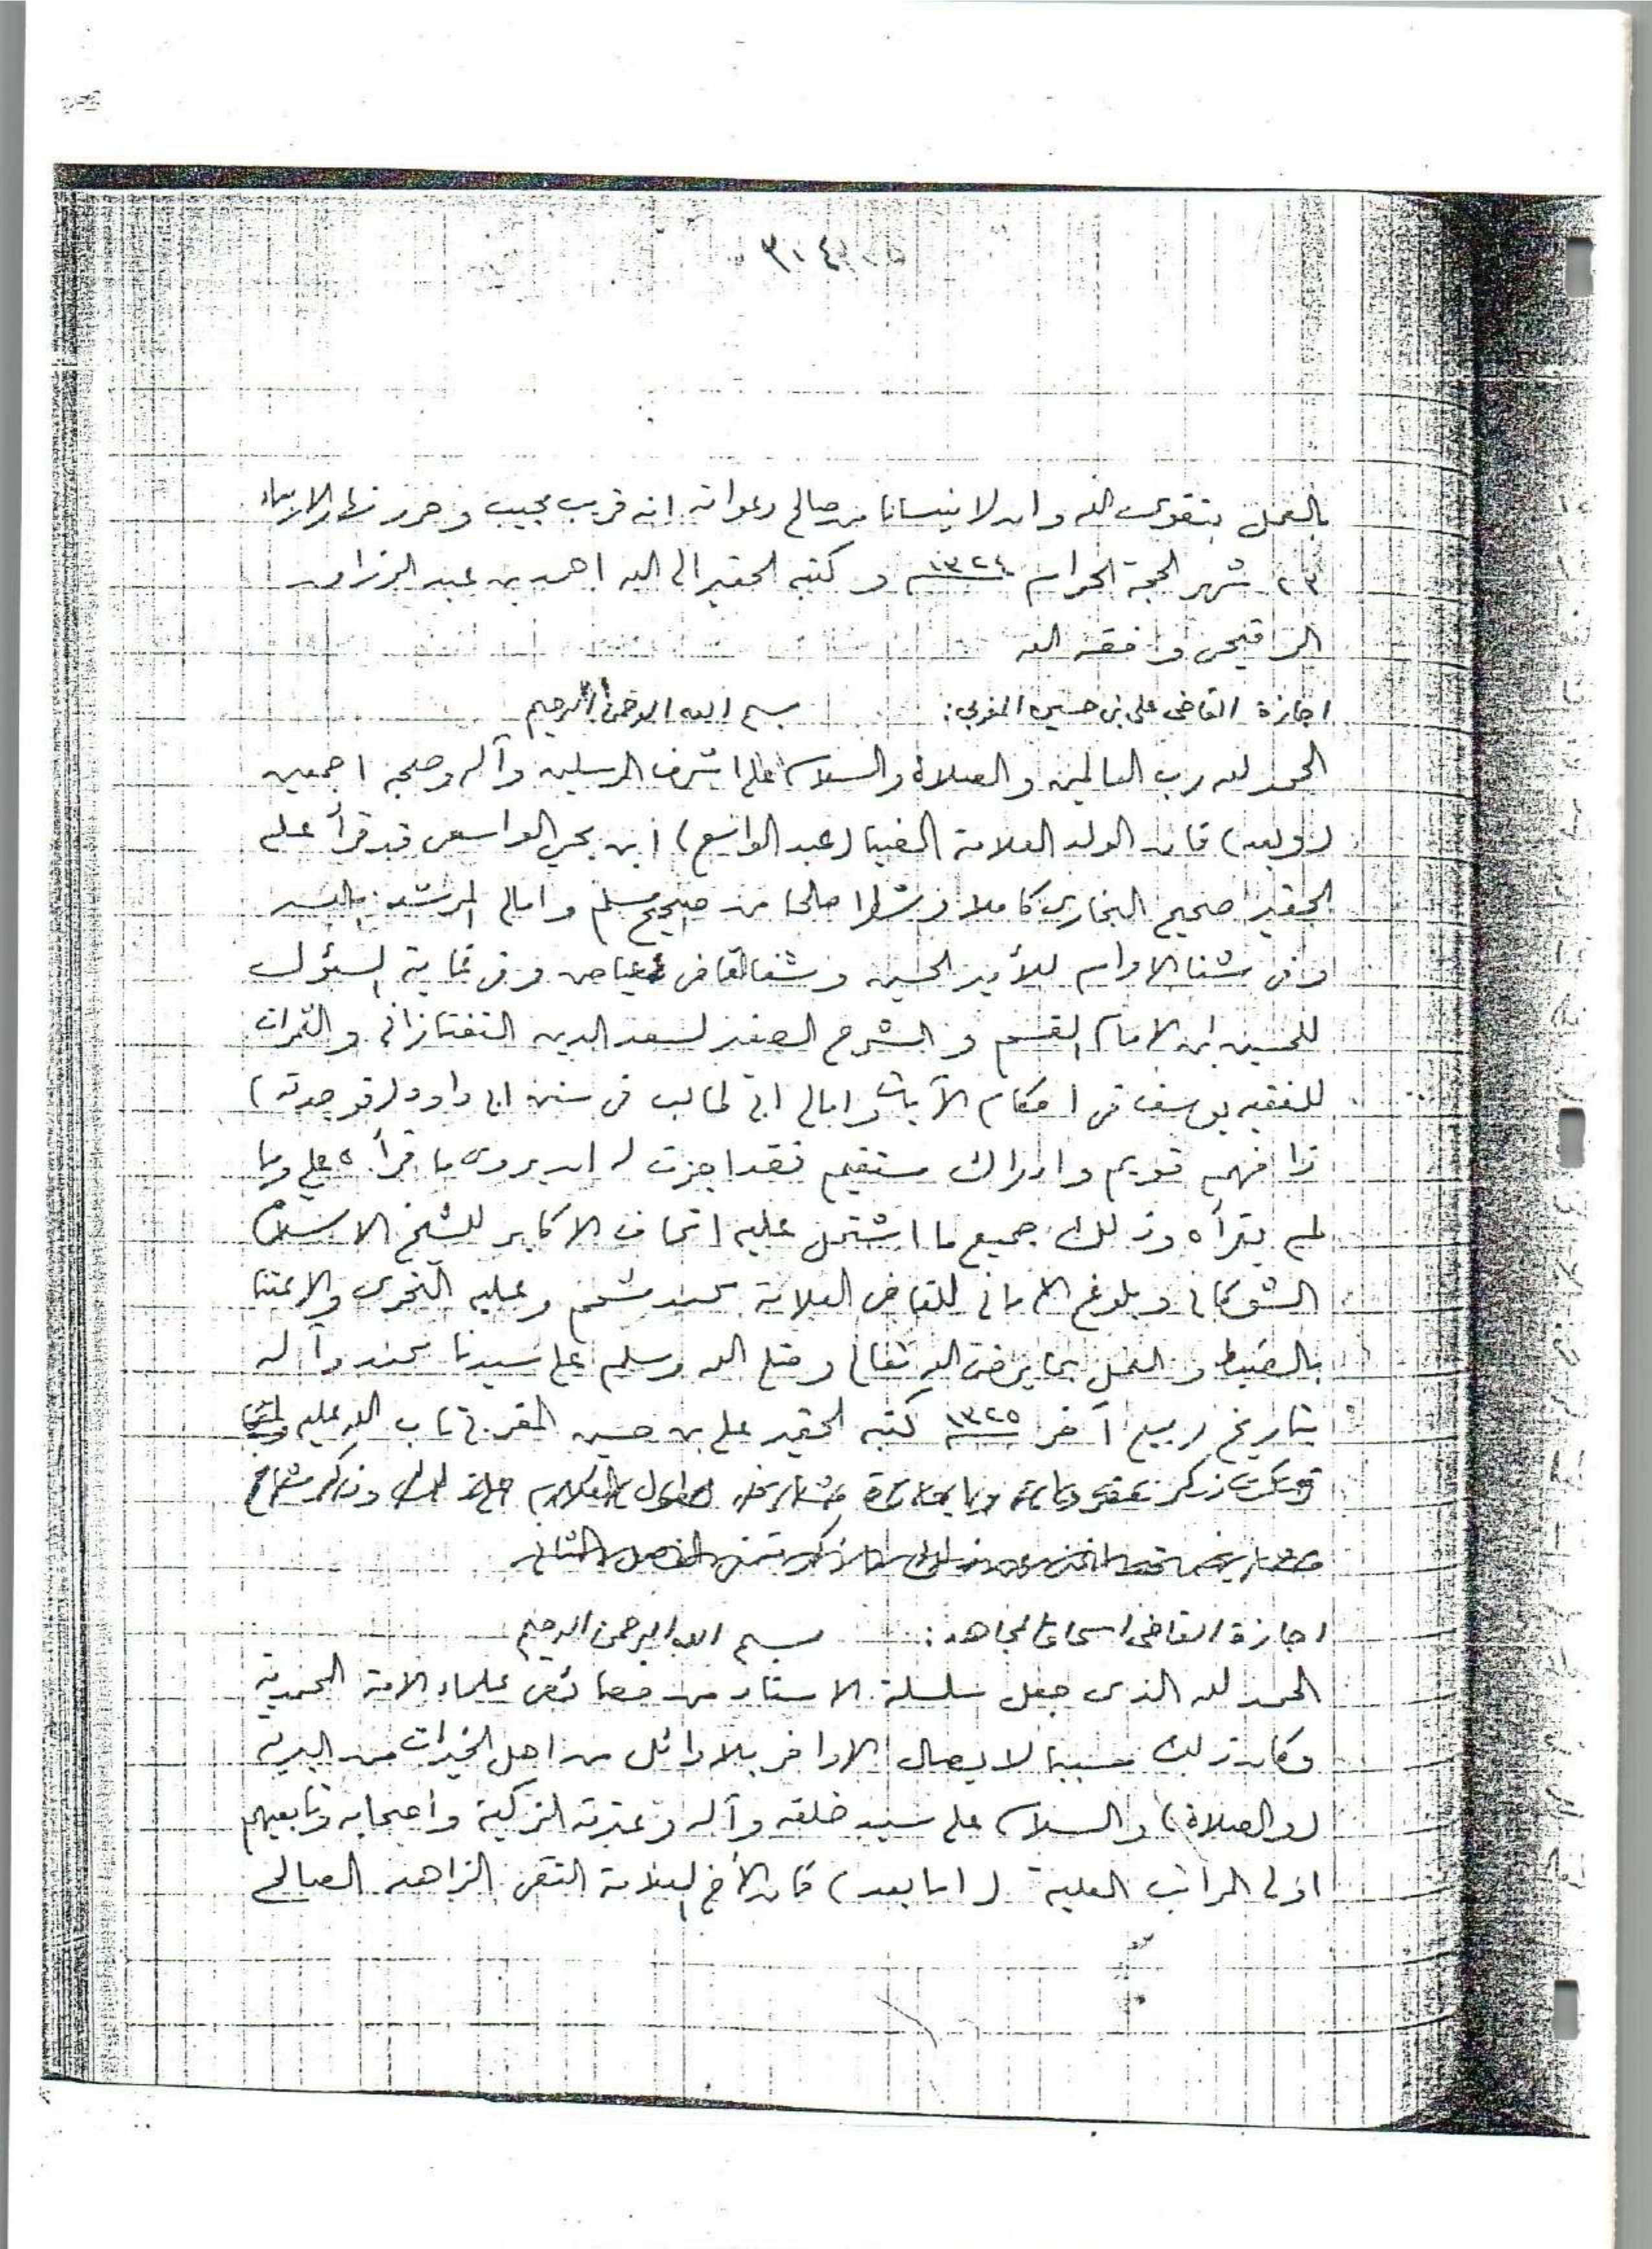 ٣٠٤
بالعمل بتقوى الله وان لا ينسانا من صالح دعواته انه قريب مجيب وحرر نهار الاربعاء
٢٣ شهر الحجة الحرام ١٣٢٤ وكتبه الحقير الى الله احمد بن عبد الرزاق
الرقيحي وفقه الله
اجازة القاضي علي بن حسين المغربي: بسم الله الرحمن الرحيم
الحمد لله رب العالمين والصلاة والسلام على اشرف المرسلين وآله وصحبه اجمعين
(وبعد) فان الولد العلامة الضيا (عبد الواسع) ابن يحي الواسعي قد قرأ على
الحقير صحيح البخاري كاملا وشطرا صالحا من صحيح مسلم وامالي المرشد بالله
وفي شفا الاوام للأمير الحسين وشفا القاضي عياض وفي غاية السئول
للحسين ابن الامام القسم والشرح الصغير لسعد الدين التفتازاني والثمرات
للفقيه يوسف في احكام الآيات وامالي ابي طالب في سنن ابي داود (فوجدته)
ذا فهم قويم وادراك مستقيم فقد اجزت له ان يروي ما قرأه علي وما
لم يقرأه وذلك جميع ما اشتمل عليه اتحاف الاكابر للشيخ الاسلام
الشوكاني وبلوغ الاماني للقاضي العلامة محمد مشحم وعليه التحري والاعتنا
بالضبط والعمل بما يرضي الله تعالى وصلى الله وسلم على سيدنا محمد وآله
بتاريخ ربيع آخر ١٣٢٥ كتبه الحقير علي بن حسين المغربي تاب الله عليه
اجازة القاضي اسحاق المجاهد: بسم الله الرحمن الرحيم
الحمد لله الذي جعل سلسلة الاسناد من خصائص علماء الامة المحمدية
وكان ذلك سببا لا يصال الاواخر بالاوائل من اهل الخيرات من البرية
(والصلاة) والسلام على سيد خلقه وآله وعترته الزكية واصحابه وتابعيهم
اولى المراتب العلية (اما بعد) فان الأخ العلامة التقي الزاهد الصالح